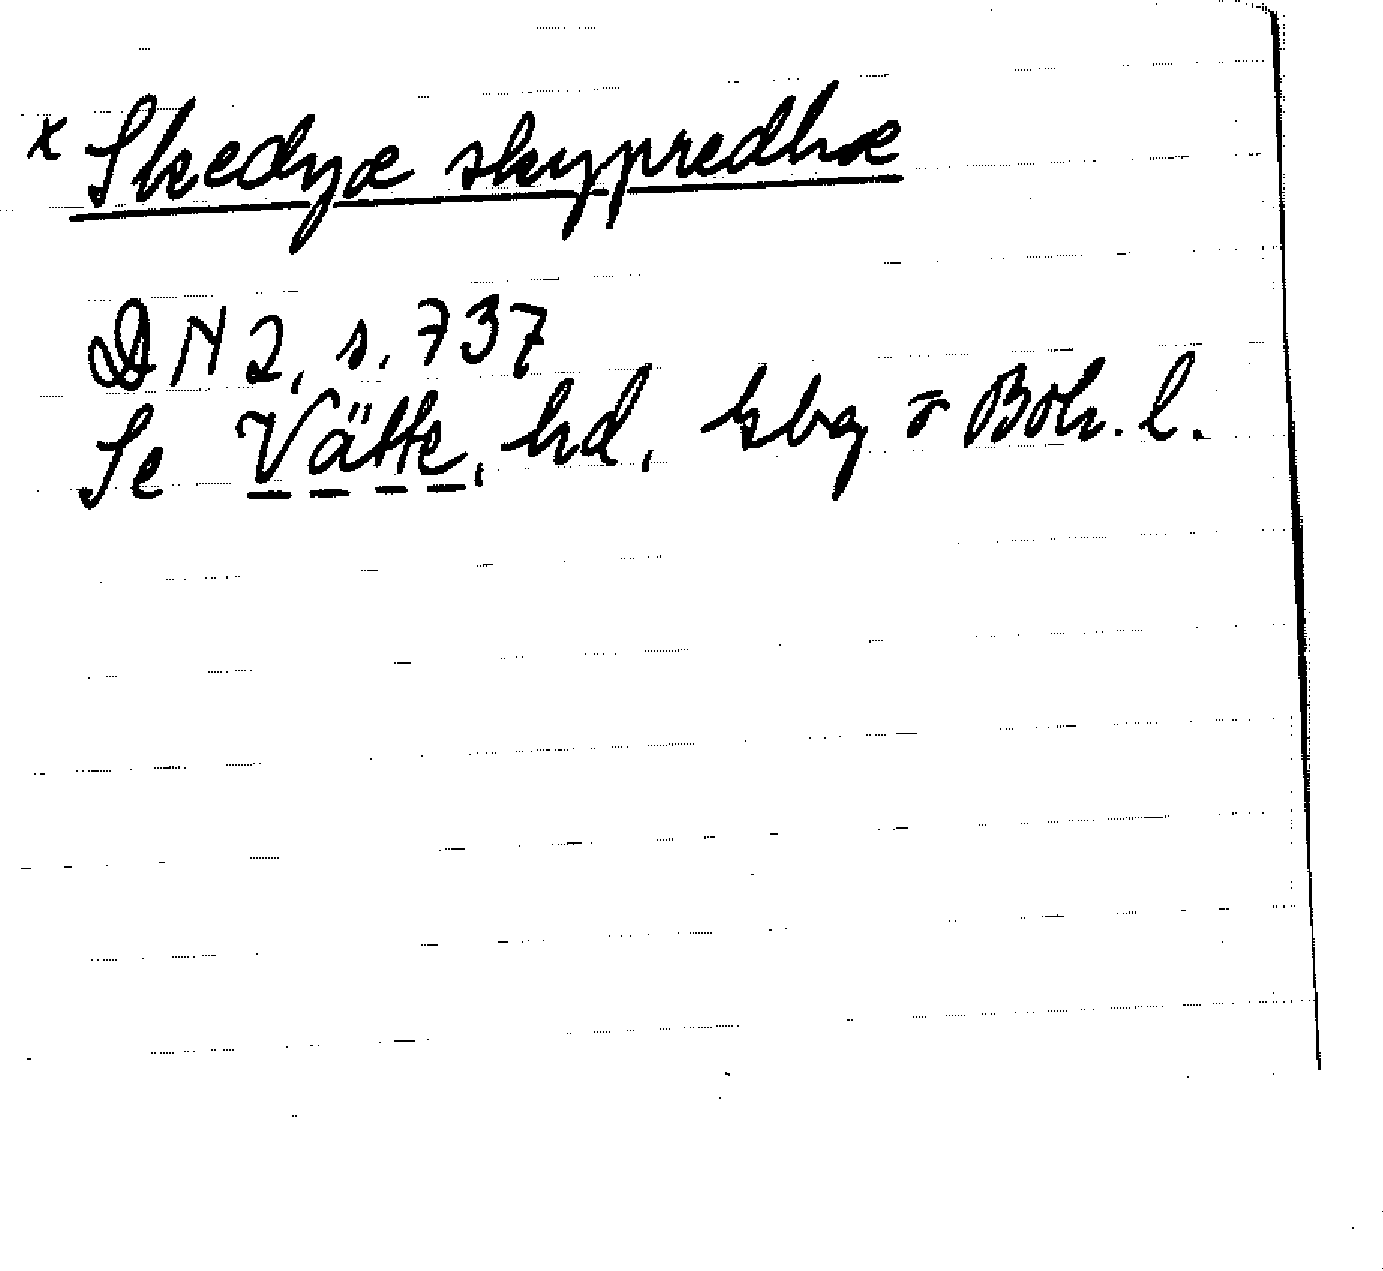 x Skedyæ skypredhæ
DN 2, s. 737
Se Vätte, hd, kbg ō Boh. l.